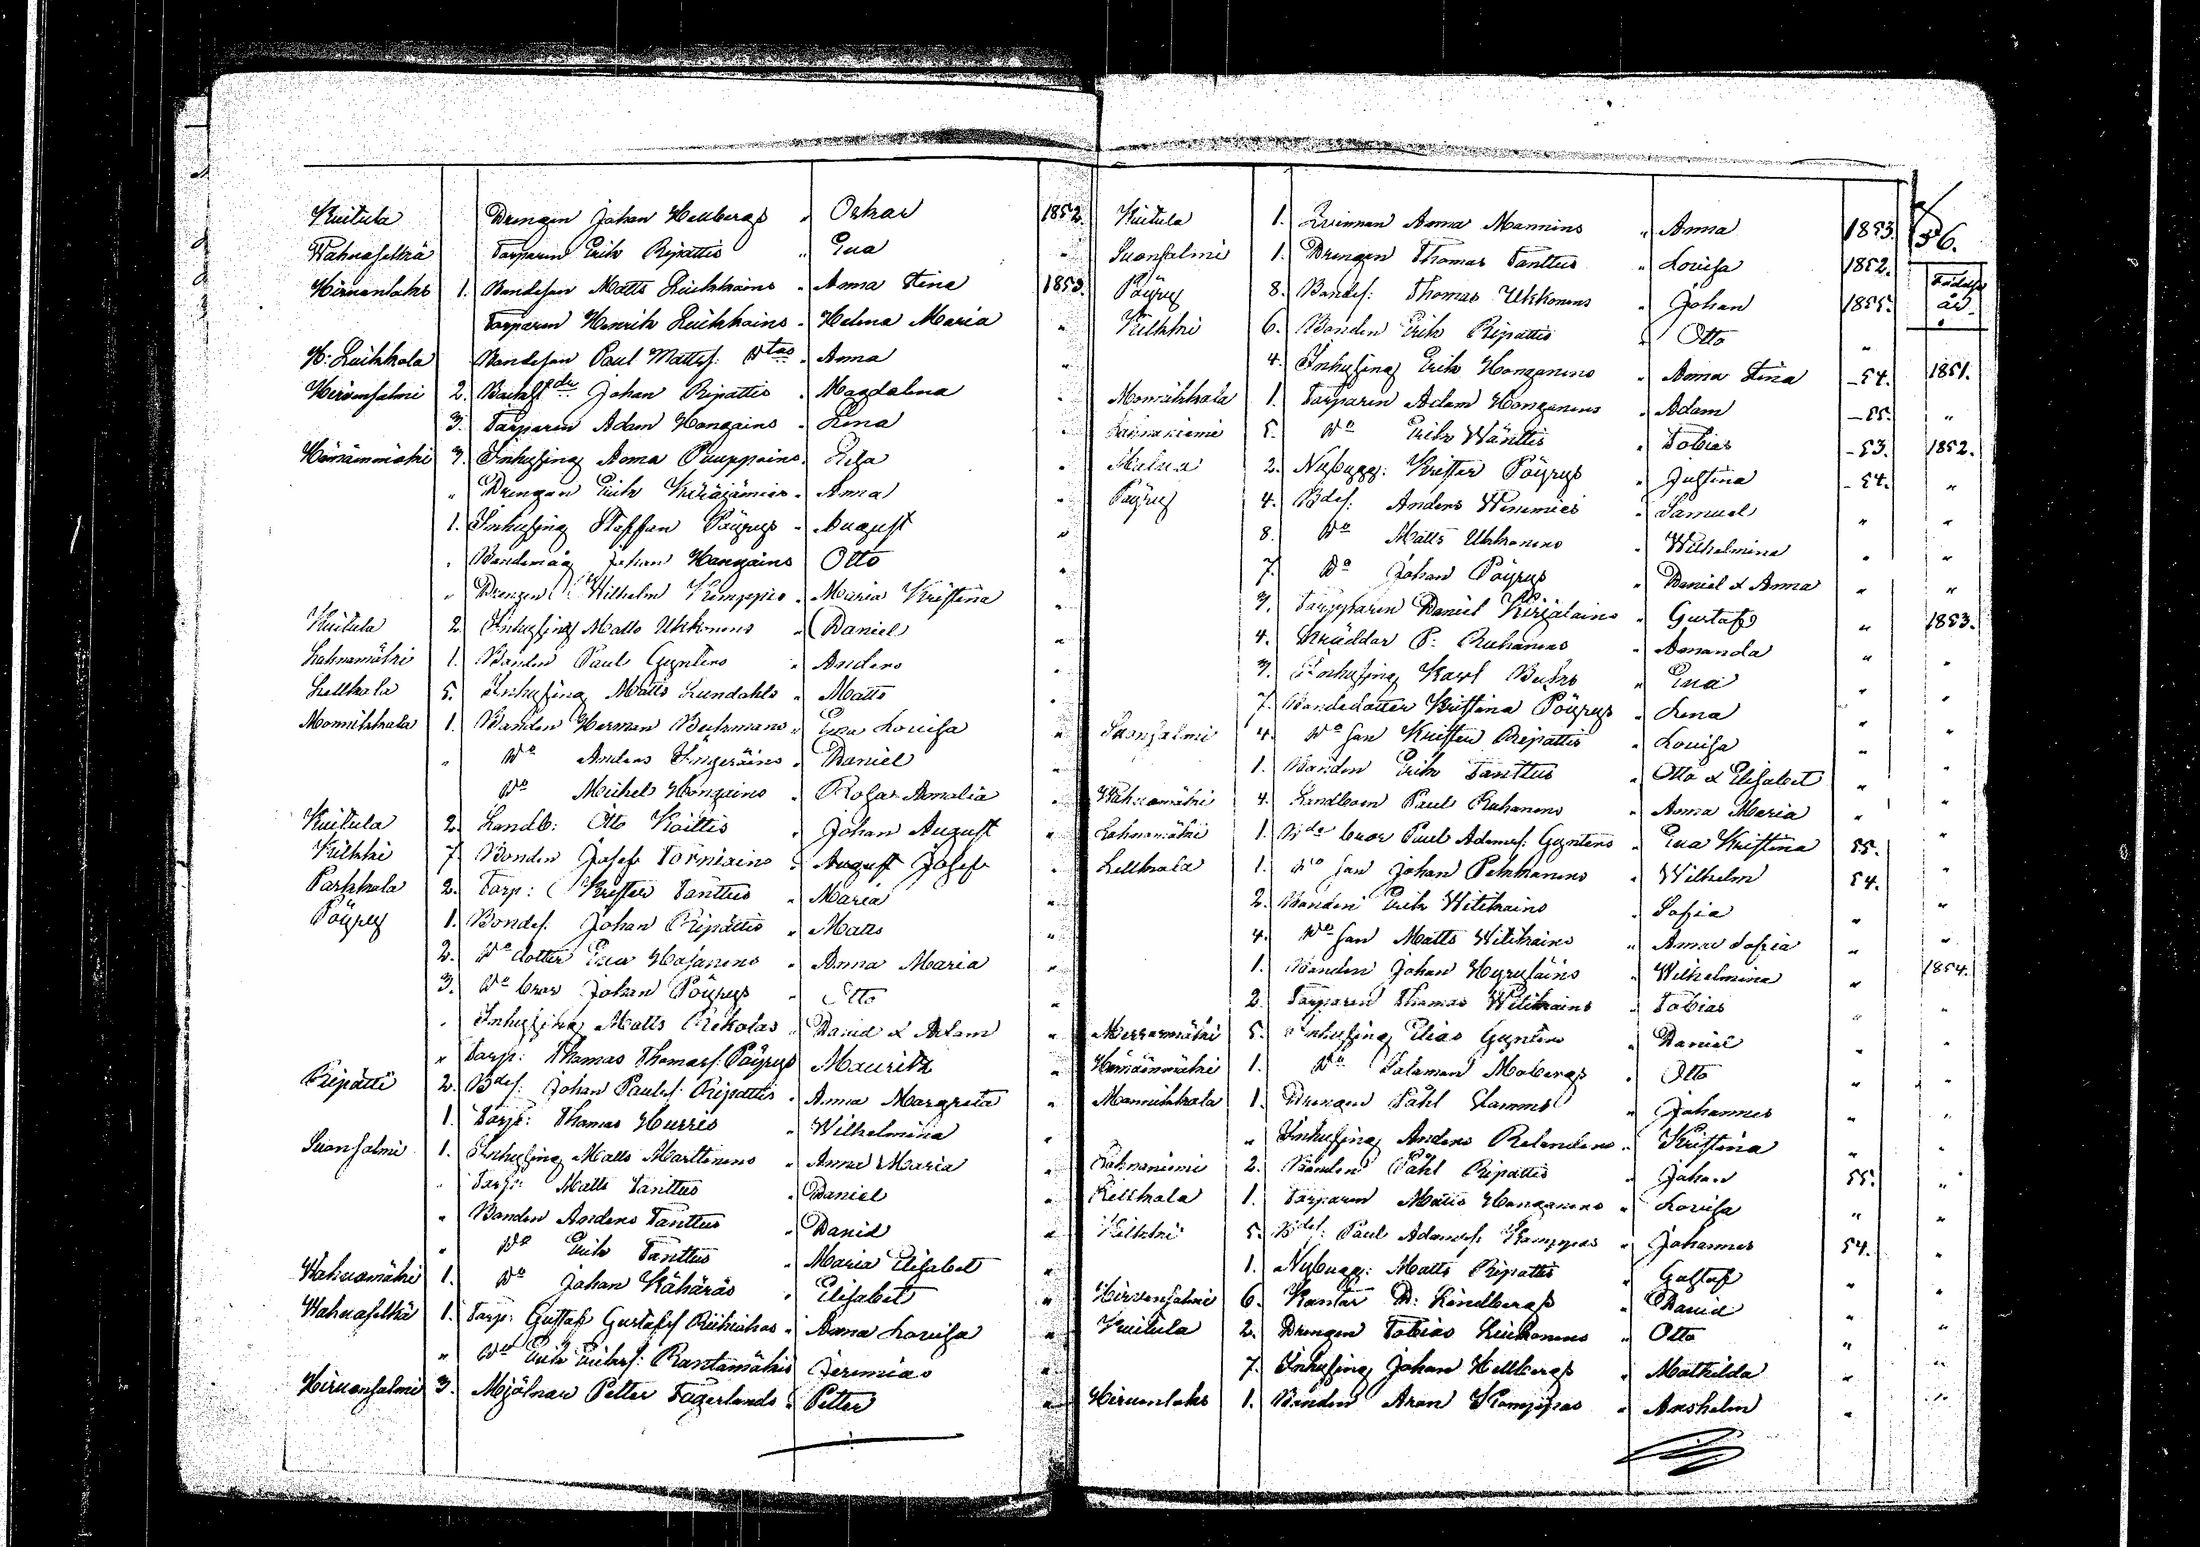 Kuitula Drengen Johan Hellbergs " Oskar 1852.
Wahvaselkä Torparen Erik Ripattis " Eva "
Hirvenlaks 1. Bondeson Matts Luikkains " Anna Stina 1853.
Torparen Henrik Luikkains " Helena Maria "
H: Luikkola Bondeson Paul Mattss: Dtos " Anna "
Hirvensalmi 2. Johan Ripattis " Magdalena "
3. Torparen Adam Hongains " Lena "
Hämäinmäki 3. Inhysing Anna Puuppoins "
" Drengen Erik " Anna "
1. Inhysing Staffan Pöyrys " August "
" Bondemåg Johan Hongains Otto "
" Drengen Wilhelm Kemppis " Maria Kristina "
Kuitula 2. Inhysing Matts Ukkonens " Daniel "
Lahnamäki 1. Bonden Paul Gynters " Anders "
Lellkala 5. Inhysing Matts Lundahls " Matts "
Monnikkala 1. Bonden Herman Buhrmans " Eva Lovisa "
" Do Anders Ingeräins " Daniel
Do Michel Hongains " Rosa Amalia "
Kuitula 2. Landb: Otto Koittis " Johan August "
Kilkki 7. Bonden Josef Torniains " August Josef "
Parkkola 2. Torp: Krister Tanttus " Maria "
Pöyry 1. Bondes. Johan Ripattis " Matts "
2. Do dotter Eva Hasanens " Anna Maria "
3. Do bror Johan Pöyrys " Otto "
" Inhysing Matts Rekolas " David & Adam "
" Torp: Thomas Thomass: Pöyrys Mauritz "
Ripatti 2. Bdes: Johan Paulss: Ripattis " Anna Margreta "
1. Torp: Thomas Hurris " Wilhelmina "
Suonsalmi 1. Inhysing Matts Marttinens " Anna Maria "
" Torp: Matts Tanttus " Daniel "
" Bonden Anders Tanttus " David "
" Do Erik Tanttus " Maria Elisabet "
Wahvamäki 1. Do Johan Kähäräs " Elisabet "
Wahvaselkä 1. Torp: Gustaf Gustafss Riihiahos " Anna Lovisa "
" Do Erik Erikss: Rantamäkis Jeremias "
Hirvensalmi 3. Mjölnar Petter Fagerlunds " Petter "
56.
Födelse år.
Kuitula 1. Qvinnan Anna Mannins " Anna 1853.
Suonsalmi 1. Drengen Thomas Tanttus " Lovisa 1852.
Pöyry 8. Bondes: Thomas Ukkonens " Johan 1855.
Kilkki 6. Bonden Erik Ripattis " Otto "
4. Inhysing Erik Honganens " Anna Stina -54. 1851.
Monnikkala 1. Torparen Adam Honganens " Adam -55. "
Lahnaniemi 5. Do Erik Wänttis " Tobias -53. 1852.
Malva 2. Nybygg: Krister Pöyrys " Justina -54. "
Pöyry 4. Bdes: Anders " Samuel " "
8. Do Matts Ukkonens " Wilhelmina " "
7. Do Johan Pöyrys " Daniel & Anna " "
3. Torparen Daniel Kirjalains " Gustaf " 1853.
4. Skräddar P: Ruhanens " Amanda " "
3. Inhysing Karl " Eva " "
7. Bondedotter Kristina Pöyrys " Lena " "
Suonsalmi 4. Do son Krister Ripattis " Lovisa " "
1. Bonden Erik Tanttus " Otto & Elisabet " "
Wahvamäki 4. Landboen Paul Ruhanens " Anna Maria " "
Lahnamäki 1. Bde bror Paul Adamss: Gyntens " Eva Kristina 55. "
Lellkala 1. Do son Johan Pekkanens " Wilhelm 54. "
2. Bonden Erik Witikains " Sofia " "
4. Do son Matts Witikains " Anna Sofia " "
1. Bonden Johan Hyryläins " Wilhelmina " 1854.
2. Torparen Thomas Witikains " Tobias " "
5. Inhysing Elias Gyntens " Daniel " "
Hämäinmäki 1. Do Salomon Mobergs " Otto " "
Monnikkala 1. Drengen Påhl Stamms " Johannes " "
" Inhysing Anders Relanders " Kristina " "
Lahnaniemi 2. Bonden Påhl Ripattis " Johan 55. "
Lellkala 1. Torparen Matts Honganens " Lovisa " "
Kilkki 5. Bdes: Paul Adamss Kamppas " Johannes 54. "
1. Nybygg: Matts Ripattis " Gustaf " "
Hirvensalmi 6. Kantor D: Lindbergs " David " "
Kuitula 2. Drengen Tobias Liukonens " Otto " "
7. Inhysing Johan Hellbergs " Mathilda " "
Hirvenlaks 1. Bonden Aron Kamppas " Anshelm " "